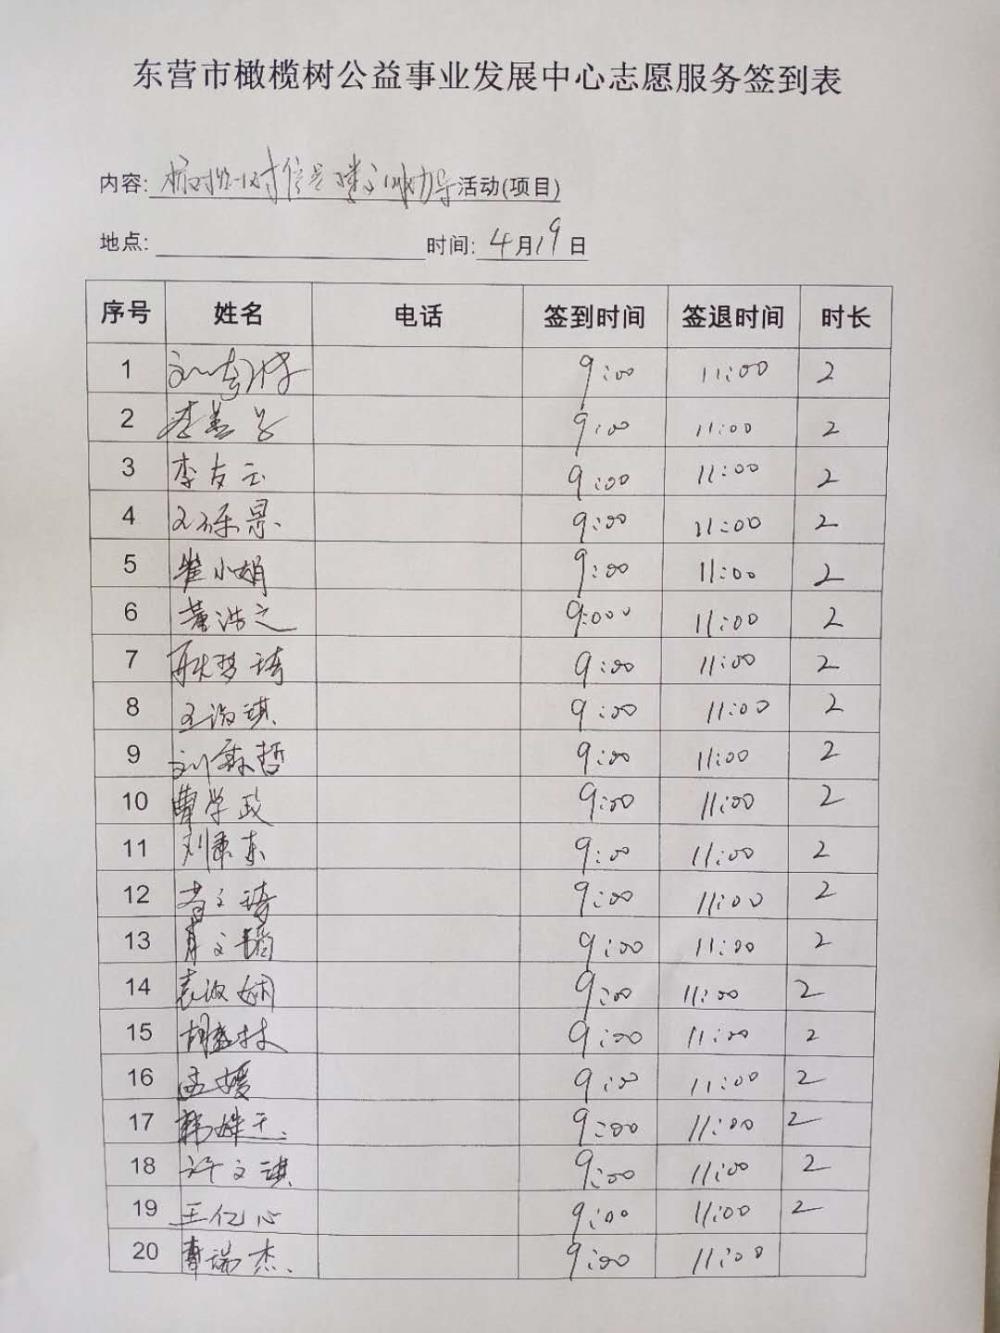 东营市橄榄树公益事业发展中心志愿服务签到表
内容: 活动(项目)
地点: 时间: 4月19日
序号 姓名 电话 签到时间 签退时间 时长
1 9:00 11:00 2
2 9:00 11:00 2
3 李友云 9:00 11:00 2
4 9:00 11:00 2
5 崔小娟 9:00 11:00 2
6 董浩之 9:000 11:00 2
7 耿梦琦 9:00 11:00 2
8 王海琪 9:00 11:00 2
9 刘森哲 9:00 11:00 2
10 曹学政 9:00 11:00 2
11 刘秉东 9:00 11:00 2
12 文琦 9:00 11:00 2
13 文韬 9:00 11:00 2
14 袁汝娴 9:00 11:00 2
15 胡盛林 9:00 11:00 2
16 孟媛 9:00 11:00 2
17 韩姝玉 9:00 11:00 2
18 许文琪 9:00 11:00 2
19 王亿心 9:00 11:00 2
20 瑞杰 9:00 11:00